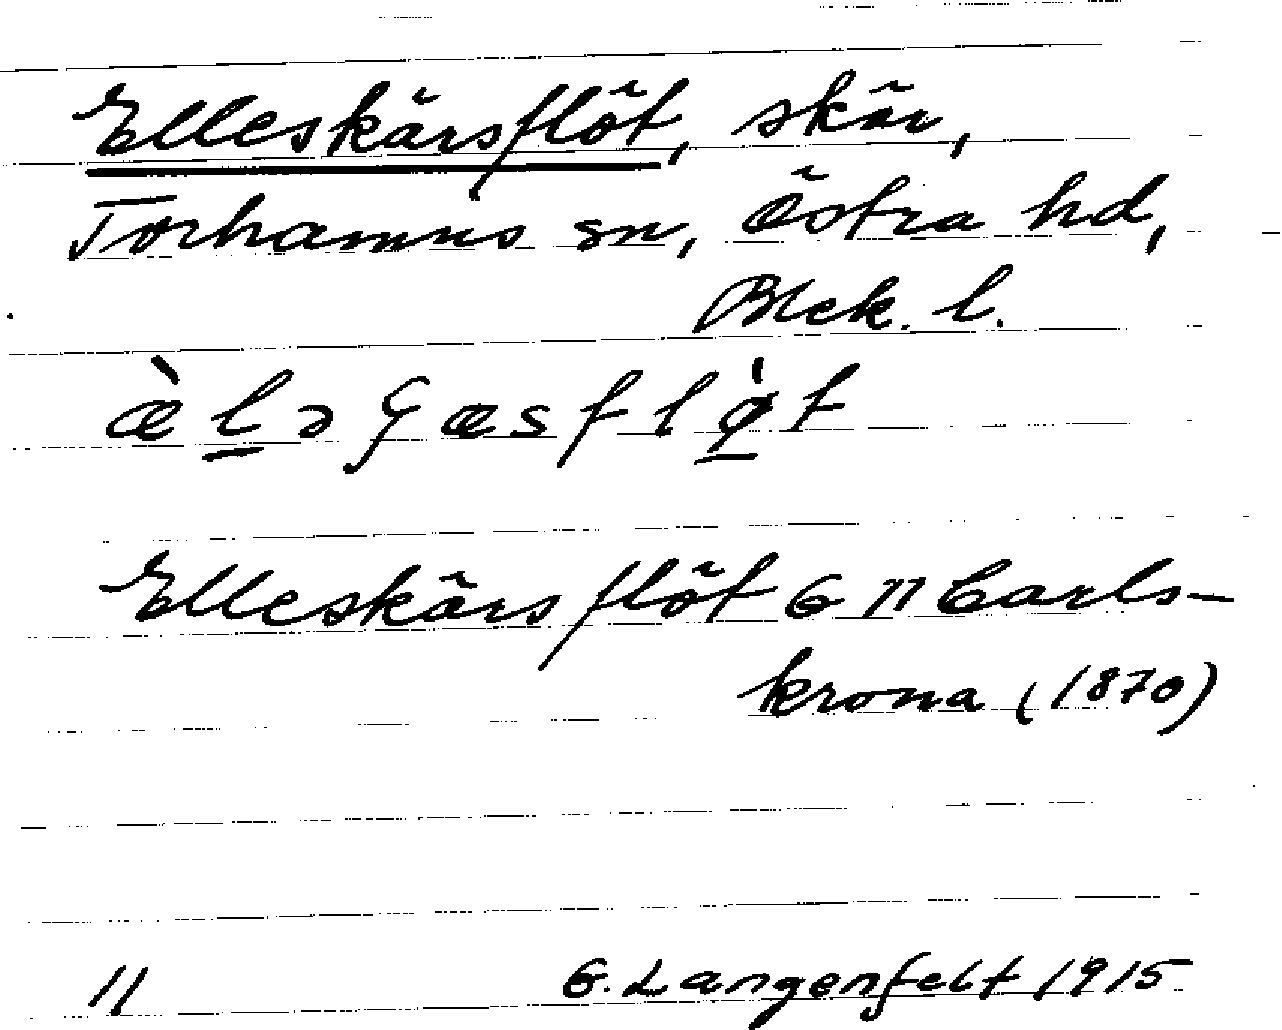 Elleskärsflöt, skär,
Torhamns sn, Östra hd,
Blek. l.
Elleskärsflöt G 11 Carls-
krona (1870)
11 G. Langenfelt 1915